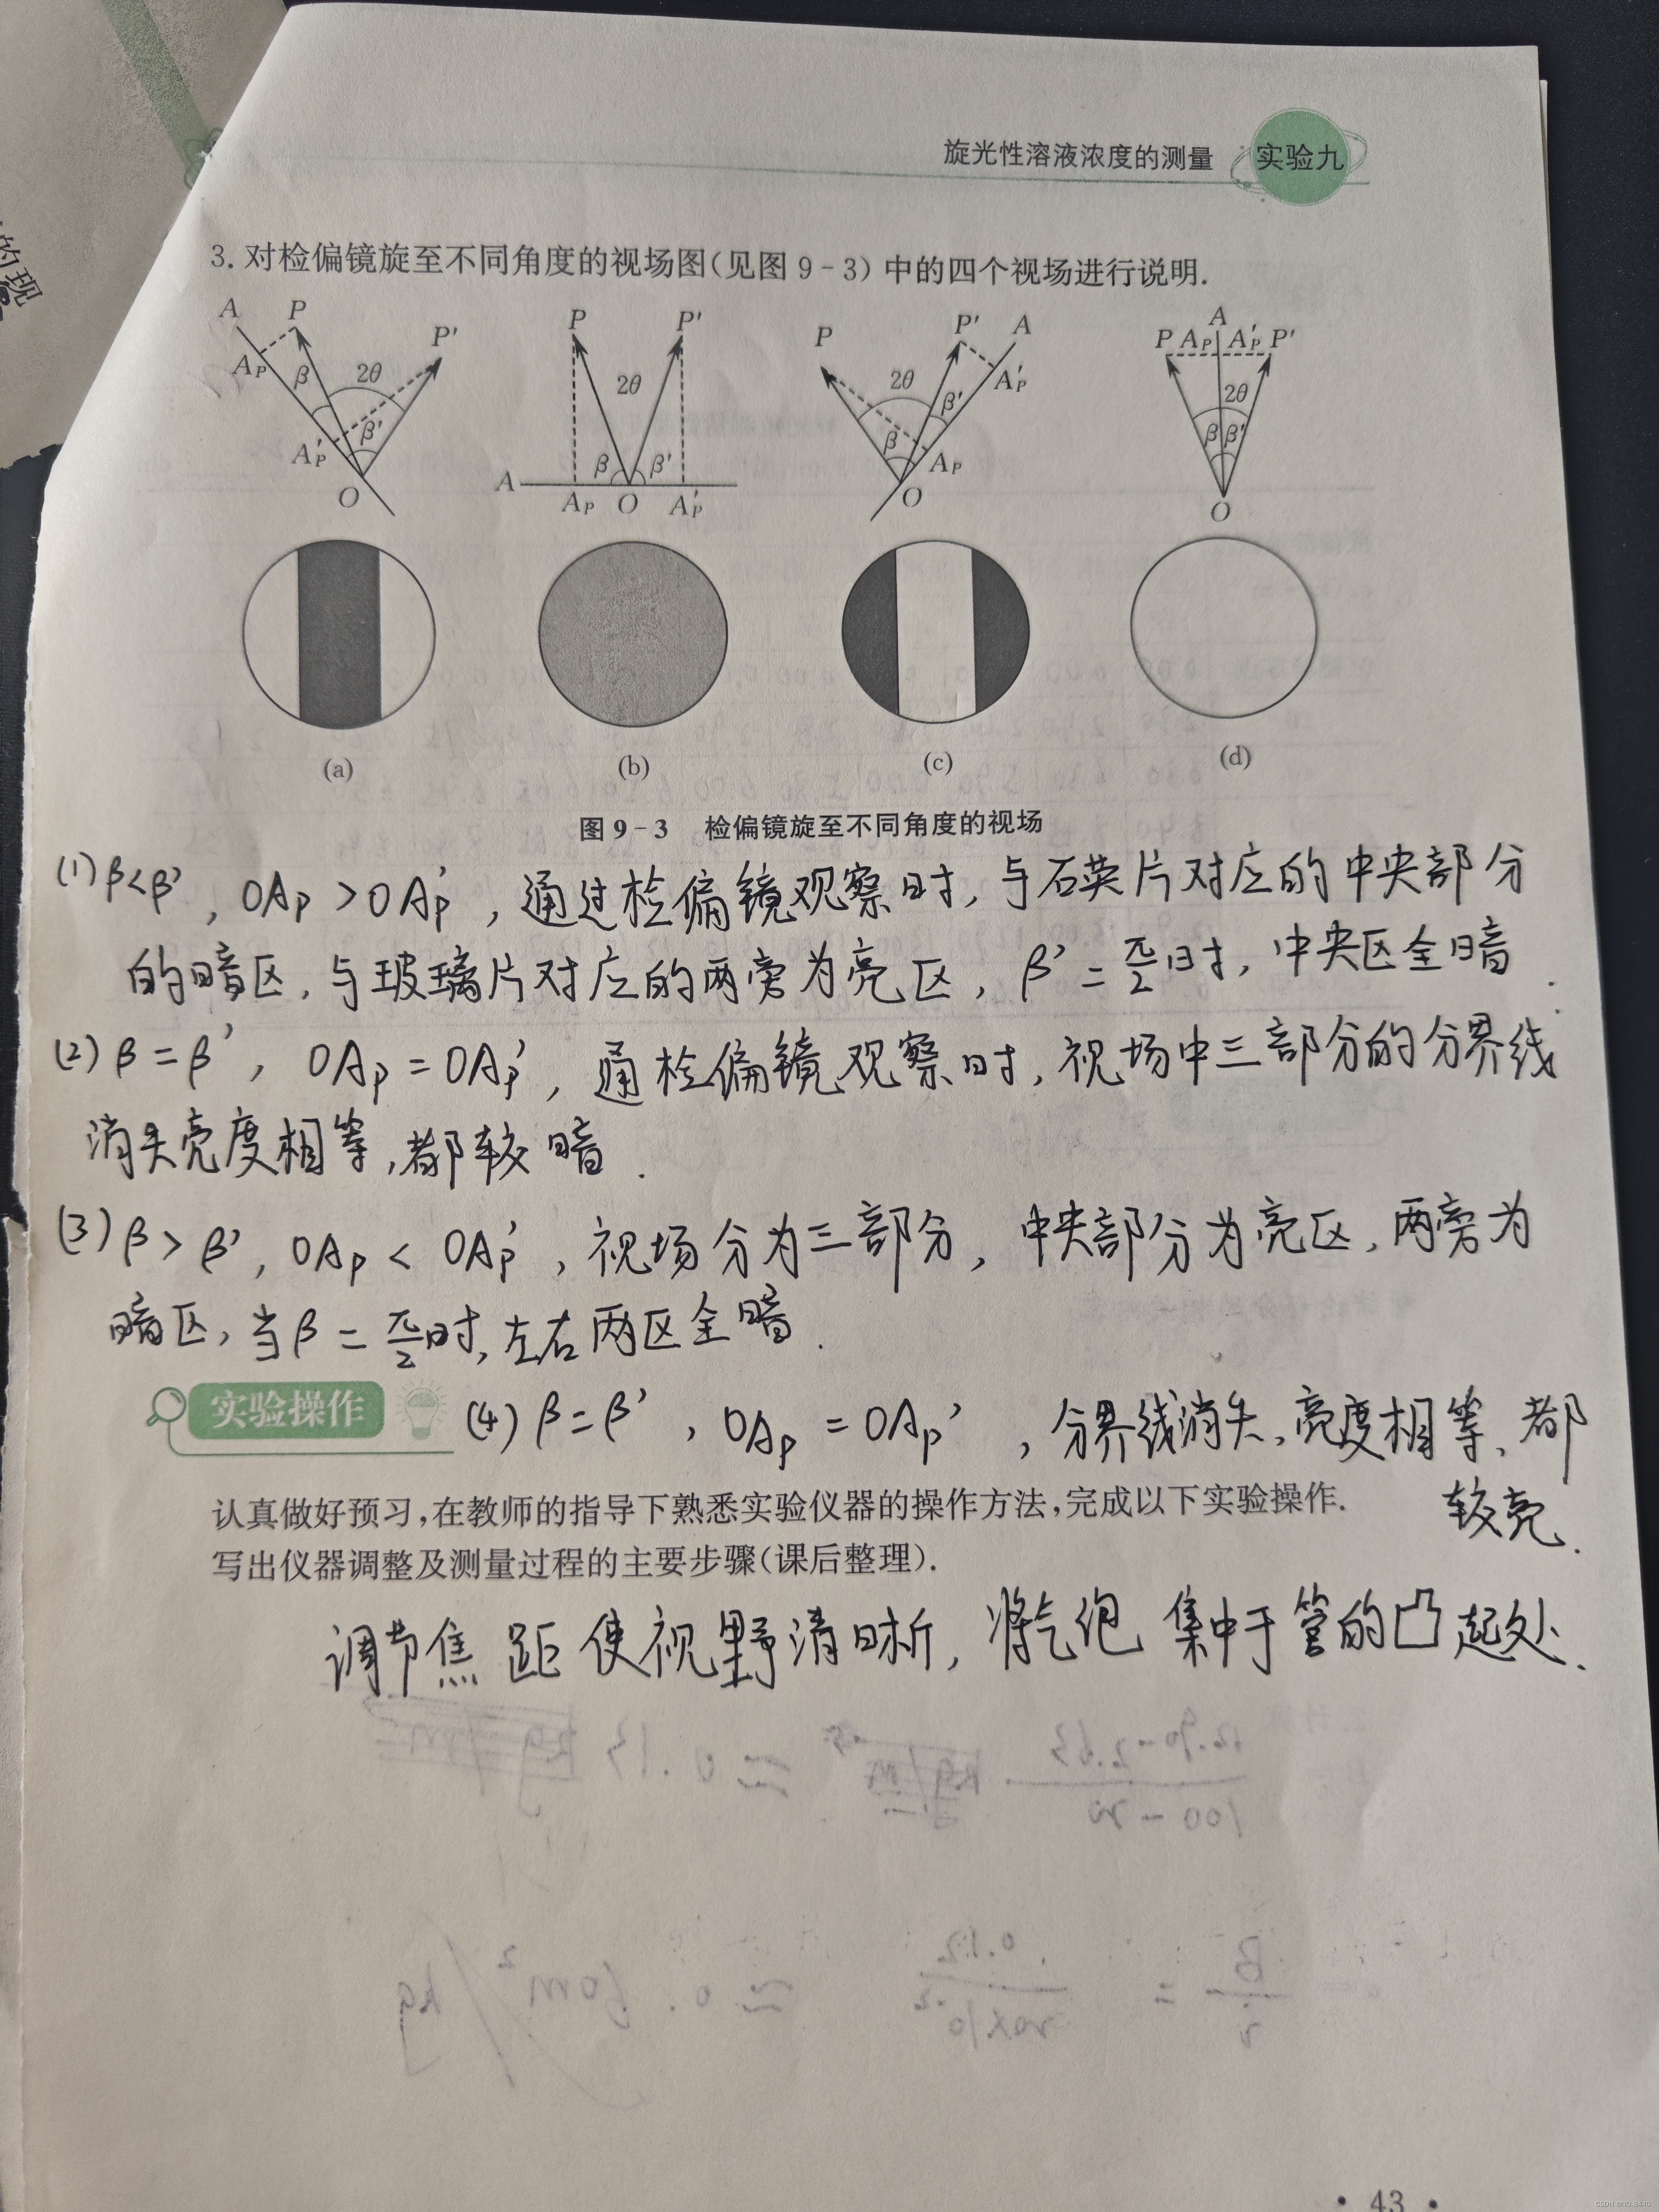 旋光性溶液浓度的测量 实验九
的现
3. 对检偏镜旋至不同角度的视场图(见图 9-3) 中的四个视场进行说明.
A P P' A_P β 2θ β' A'_P O
P P' 2θ β β' A A_P O A'_P
P P' A 2θ A'_P β' β A_P O
A P A_P A'_P P' 2θ β β' O
(a) (b) (c) (d)
图 9-3 检偏镜旋至不同角度的视场
(1) β<β', OA_P>OA_P', 通过检偏镜观察时, 与石英片对应的中央部分
的暗区, 与玻璃片对应的两旁为亮区, β'=π/2时, 中央区全暗.
(2) β=β', OA_P=OA_P', 通检偏镜观察时, 视场中三部分的分界线
消失亮度相等, 都较暗.
(3) β>β', OA_P<OA_P', 视场分为三部分, 中央部分为亮区, 两旁为
暗区, 当β=π/2时, 左右两区全暗.
实验操作 (4) β=β', OA_P=OA_P', 分界线消失, 亮度相等, 都
较亮.
认真做好预习,在教师的指导下熟悉实验仪器的操作方法,完成以下实验操作.
写出仪器调整及测量过程的主要步骤(课后整理).
调节焦距使视野清晰, 将气泡集中于管的凸起处.
· 43 ·